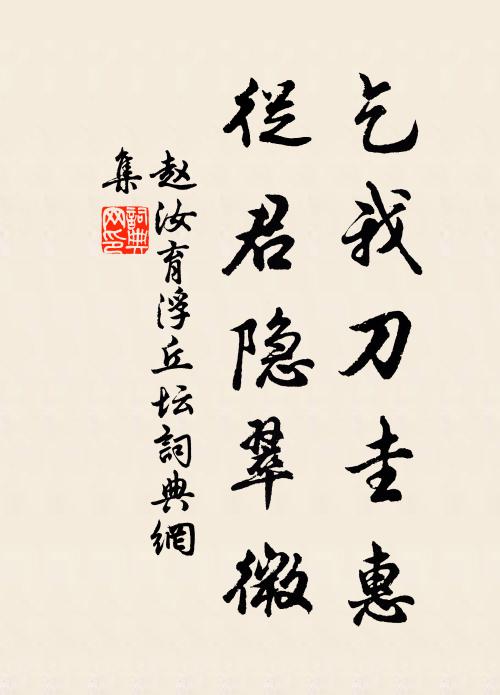 乞我刀圭惠
從君隐翠微
赵汝育浮丘坛詞典網
集
詞典
网印